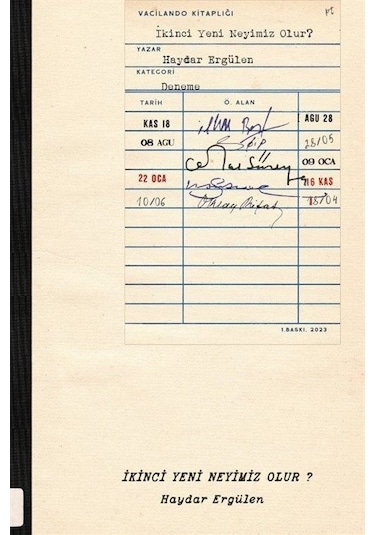 VACİLANDO KİTAPLIĞI
İkinci Yeni Neyimiz Olur?
YAZAR
Haydar Ergülen
KATEGORİ
Deneme
TARİH Ö. ALAN
KAS 18 İlhan Berk AGU 28
08 AGU 28/05
Cemal Süreya 09 OCA
22 OCA 16 KAS
10/06 Oktay Rifat 18/04
1.BASKI, 2023
İKİNCİ YENİ NEYİMİZ OLUR ?
Haydar Ergülen